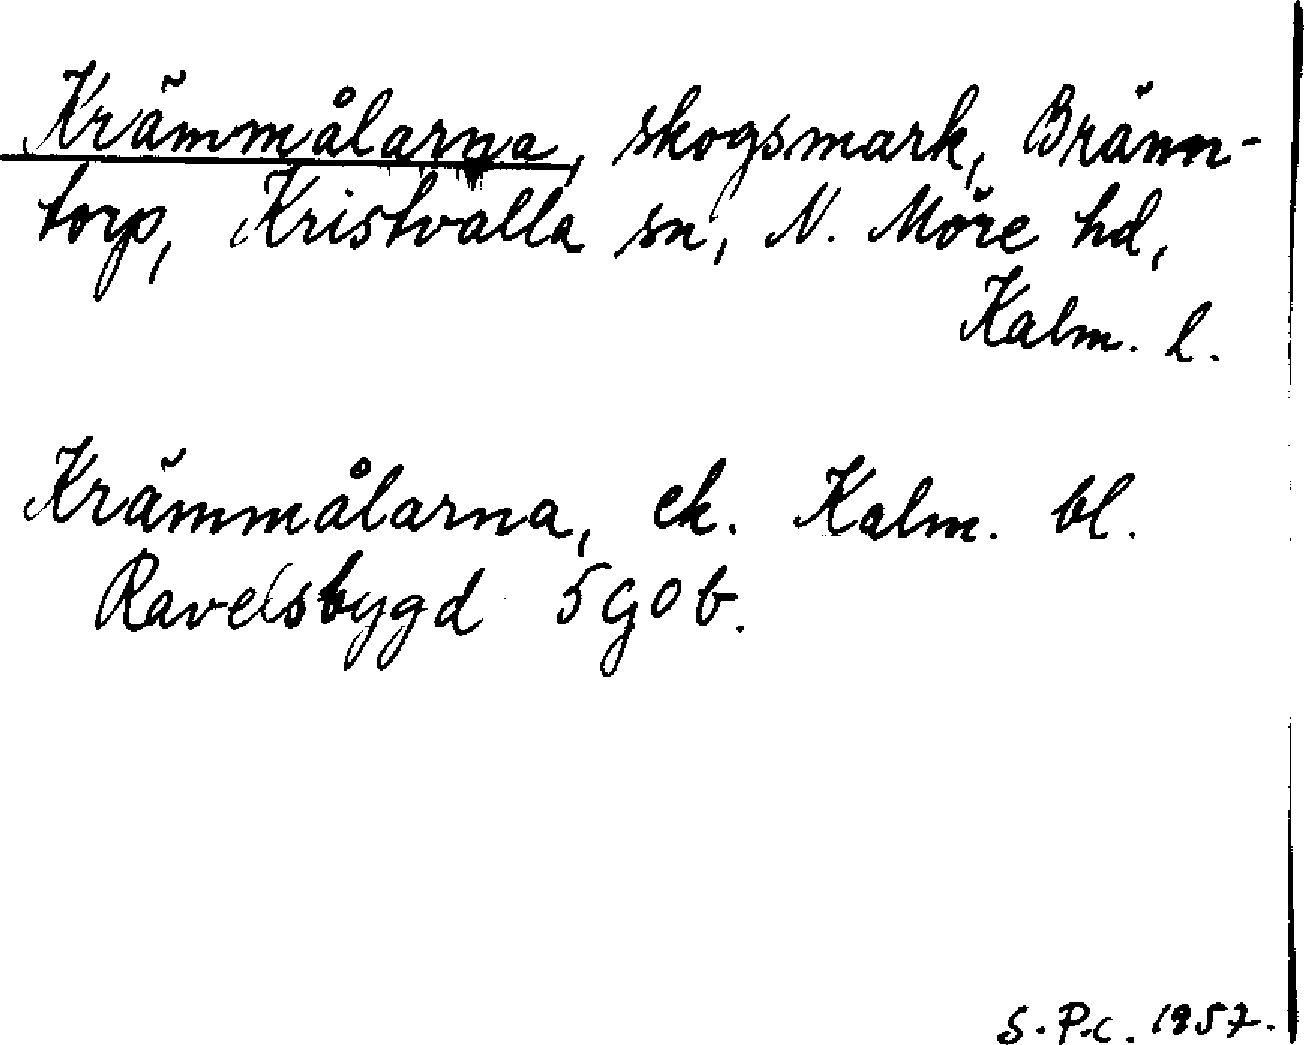 Krämmålarna, skogsmark, Bränn-
torp, Kristvalla sn, N. Möre hd,
Kalm. l.
Krämmålarna, ek. Kalm. bl.
Ravelsbygd 5 g o b.
S.P.c. 1957.